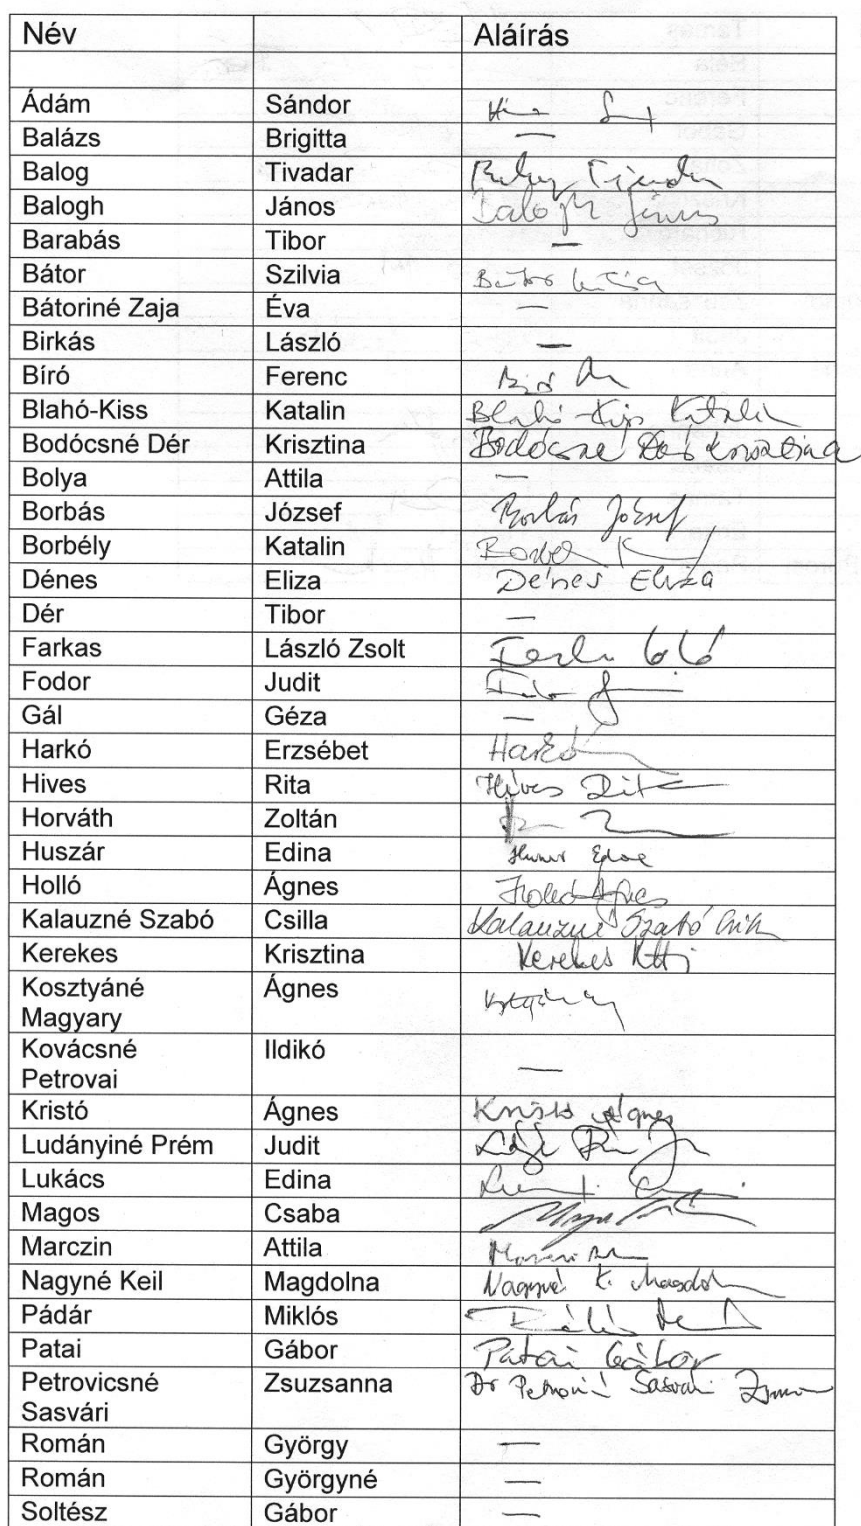 Név Aláírás
Ádám Sándor
Balázs Brigitta —
Balog Tivadar
Balogh János Balogh János
Barabás Tibor —
Bátor Szilvia Bátor
Bátoriné Zaja Éva —
Birkás László —
Bíró Ferenc Bíró
Blahó-Kiss Katalin Blahó-Kiss Katalin
Bodócsné Dér Krisztina Bodócsné Dér Krisztina
Bolya Attila —
Borbás József Borbás József
Borbély Katalin Borbély
Dénes Eliza Dénes Eliza
Dér Tibor —
Farkas László Zsolt
Fodor Judit
Gál Géza —
Harkó Erzsébet Harkó
Hives Rita Hives Rita
Horváth Zoltán
Huszár Edina
Holló Ágnes Holló Ágnes
Kalauzné Szabó Csilla Kalauzné Szabó
Kerekes Krisztina Kerekes
Kosztyáné Ágnes
Magyary
Kovácsné Ildikó —
Petrovai
Kristó Ágnes Kristó Ágnes
Ludányiné Prém Judit
Lukács Edina
Magos Csaba
Marczin Attila
Nagyné Keil Magdolna Nagyné K.
Pádár Miklós
Patai Gábor Patai Gábor
Petrovicsné Zsuzsanna Dr Sasvári
Sasvári
Román György —
Román Györgyné —
Soltész Gábor —